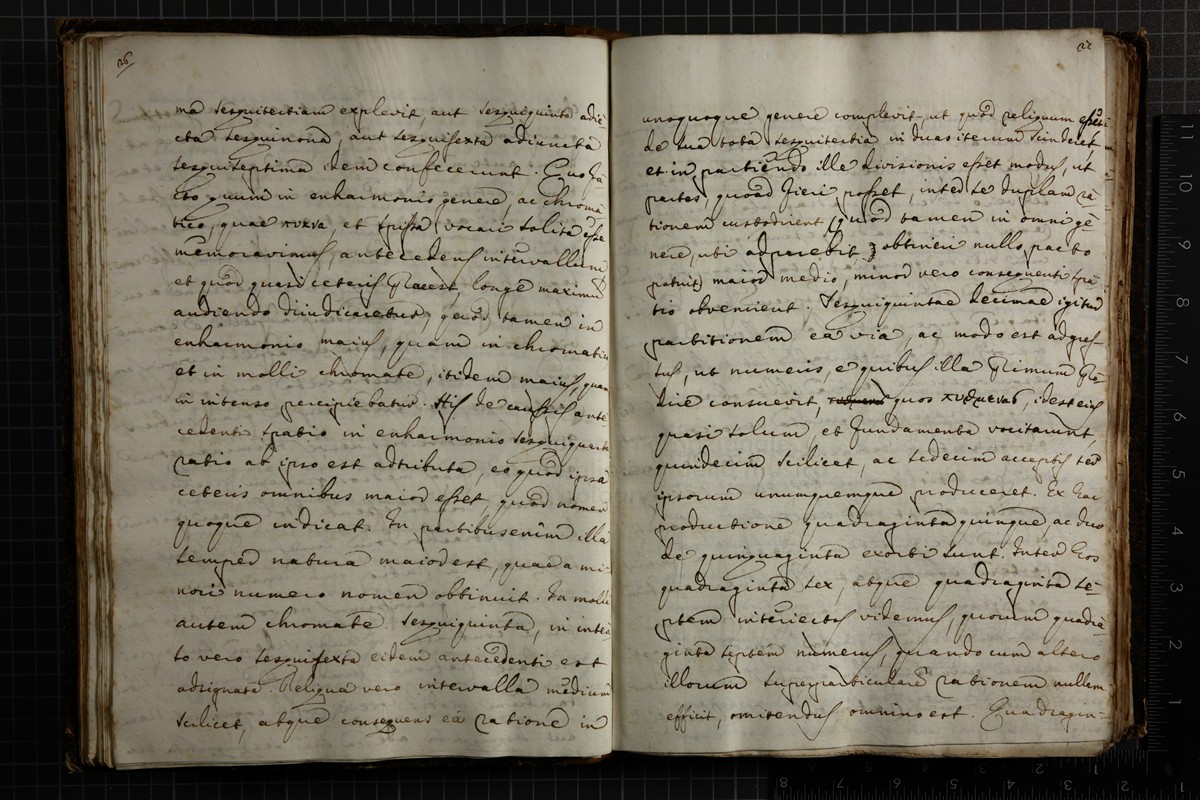 26
mā sesquitertiam explevit, aut sesquiquinta adie-
cta sesquinona, aut sesquisexta adiuncta
sesquiseptima idem confecerunt. Quo fa-
cto quum in enharmonio genere, ac chroma-
tico, quae πυκνα, et spissa vocari solita esse
memoravimus, antecedens intervallum
et quod quasi ceteris longe maximum
audiendo diiudicarebur, quod tamen in
enharmonio maius, quam in chromatico
et in molli chromate, itidem maius, quam
in intenso percipiebatur. His de caussis ante
cedenti spatio in enharmonio sesquiquarta
ratio ab ipso est adtributa, eo quod ipsa
ceteris omnibus maior esset, quod nomen
quoque indicat. In partibus enim illa
semper natura maior est, quae a mi-
nori numero nomen obtinuit. In molli
autem chromate sesquiquinta, in inten
to vero sesquisexta eidem antecedenti est
adsignata. Reliqua vero intervalla medium
scilicet, atque consequens ea ratione in
27
unoquoque genere complevit, ut quod reliquum
de sua tota sesquitertia in duas iterum scinderet
et in partiendo ille divisionis esset modus, ut
partes, quoad fieri posset, inter se duplam ra-
tionem custodirent, quod tamen in omni ge-
nere, ubi adparebit obtineri nullo pacto
potuit maior medio, minor vero consequenti spa-
tio obvenient. Sesquiquintae decimae igitur
partitionem ea via, ac modo est adgres-
sus, ut numeris, e quibus illa primum pro-
dire consuevit, quos πυθμενας, idest eius
quasi solum, et fundamenta vocitarunt,
quindecim scilicet, ac sedecim acceptis ter
ipsorum unumquemque produceret. Ex hac
productione quadraginta quinque ac duo
de quinquaginta exorti sunt. Inter hos
quadraginta sex, atque quadraginta se-
ptem interiectos videmus, quorum quadra-
ginta septem numerus, quando cum altero
illorum superparticularē rationem nullam
efficit, omitendus omnino est. Quadragin-